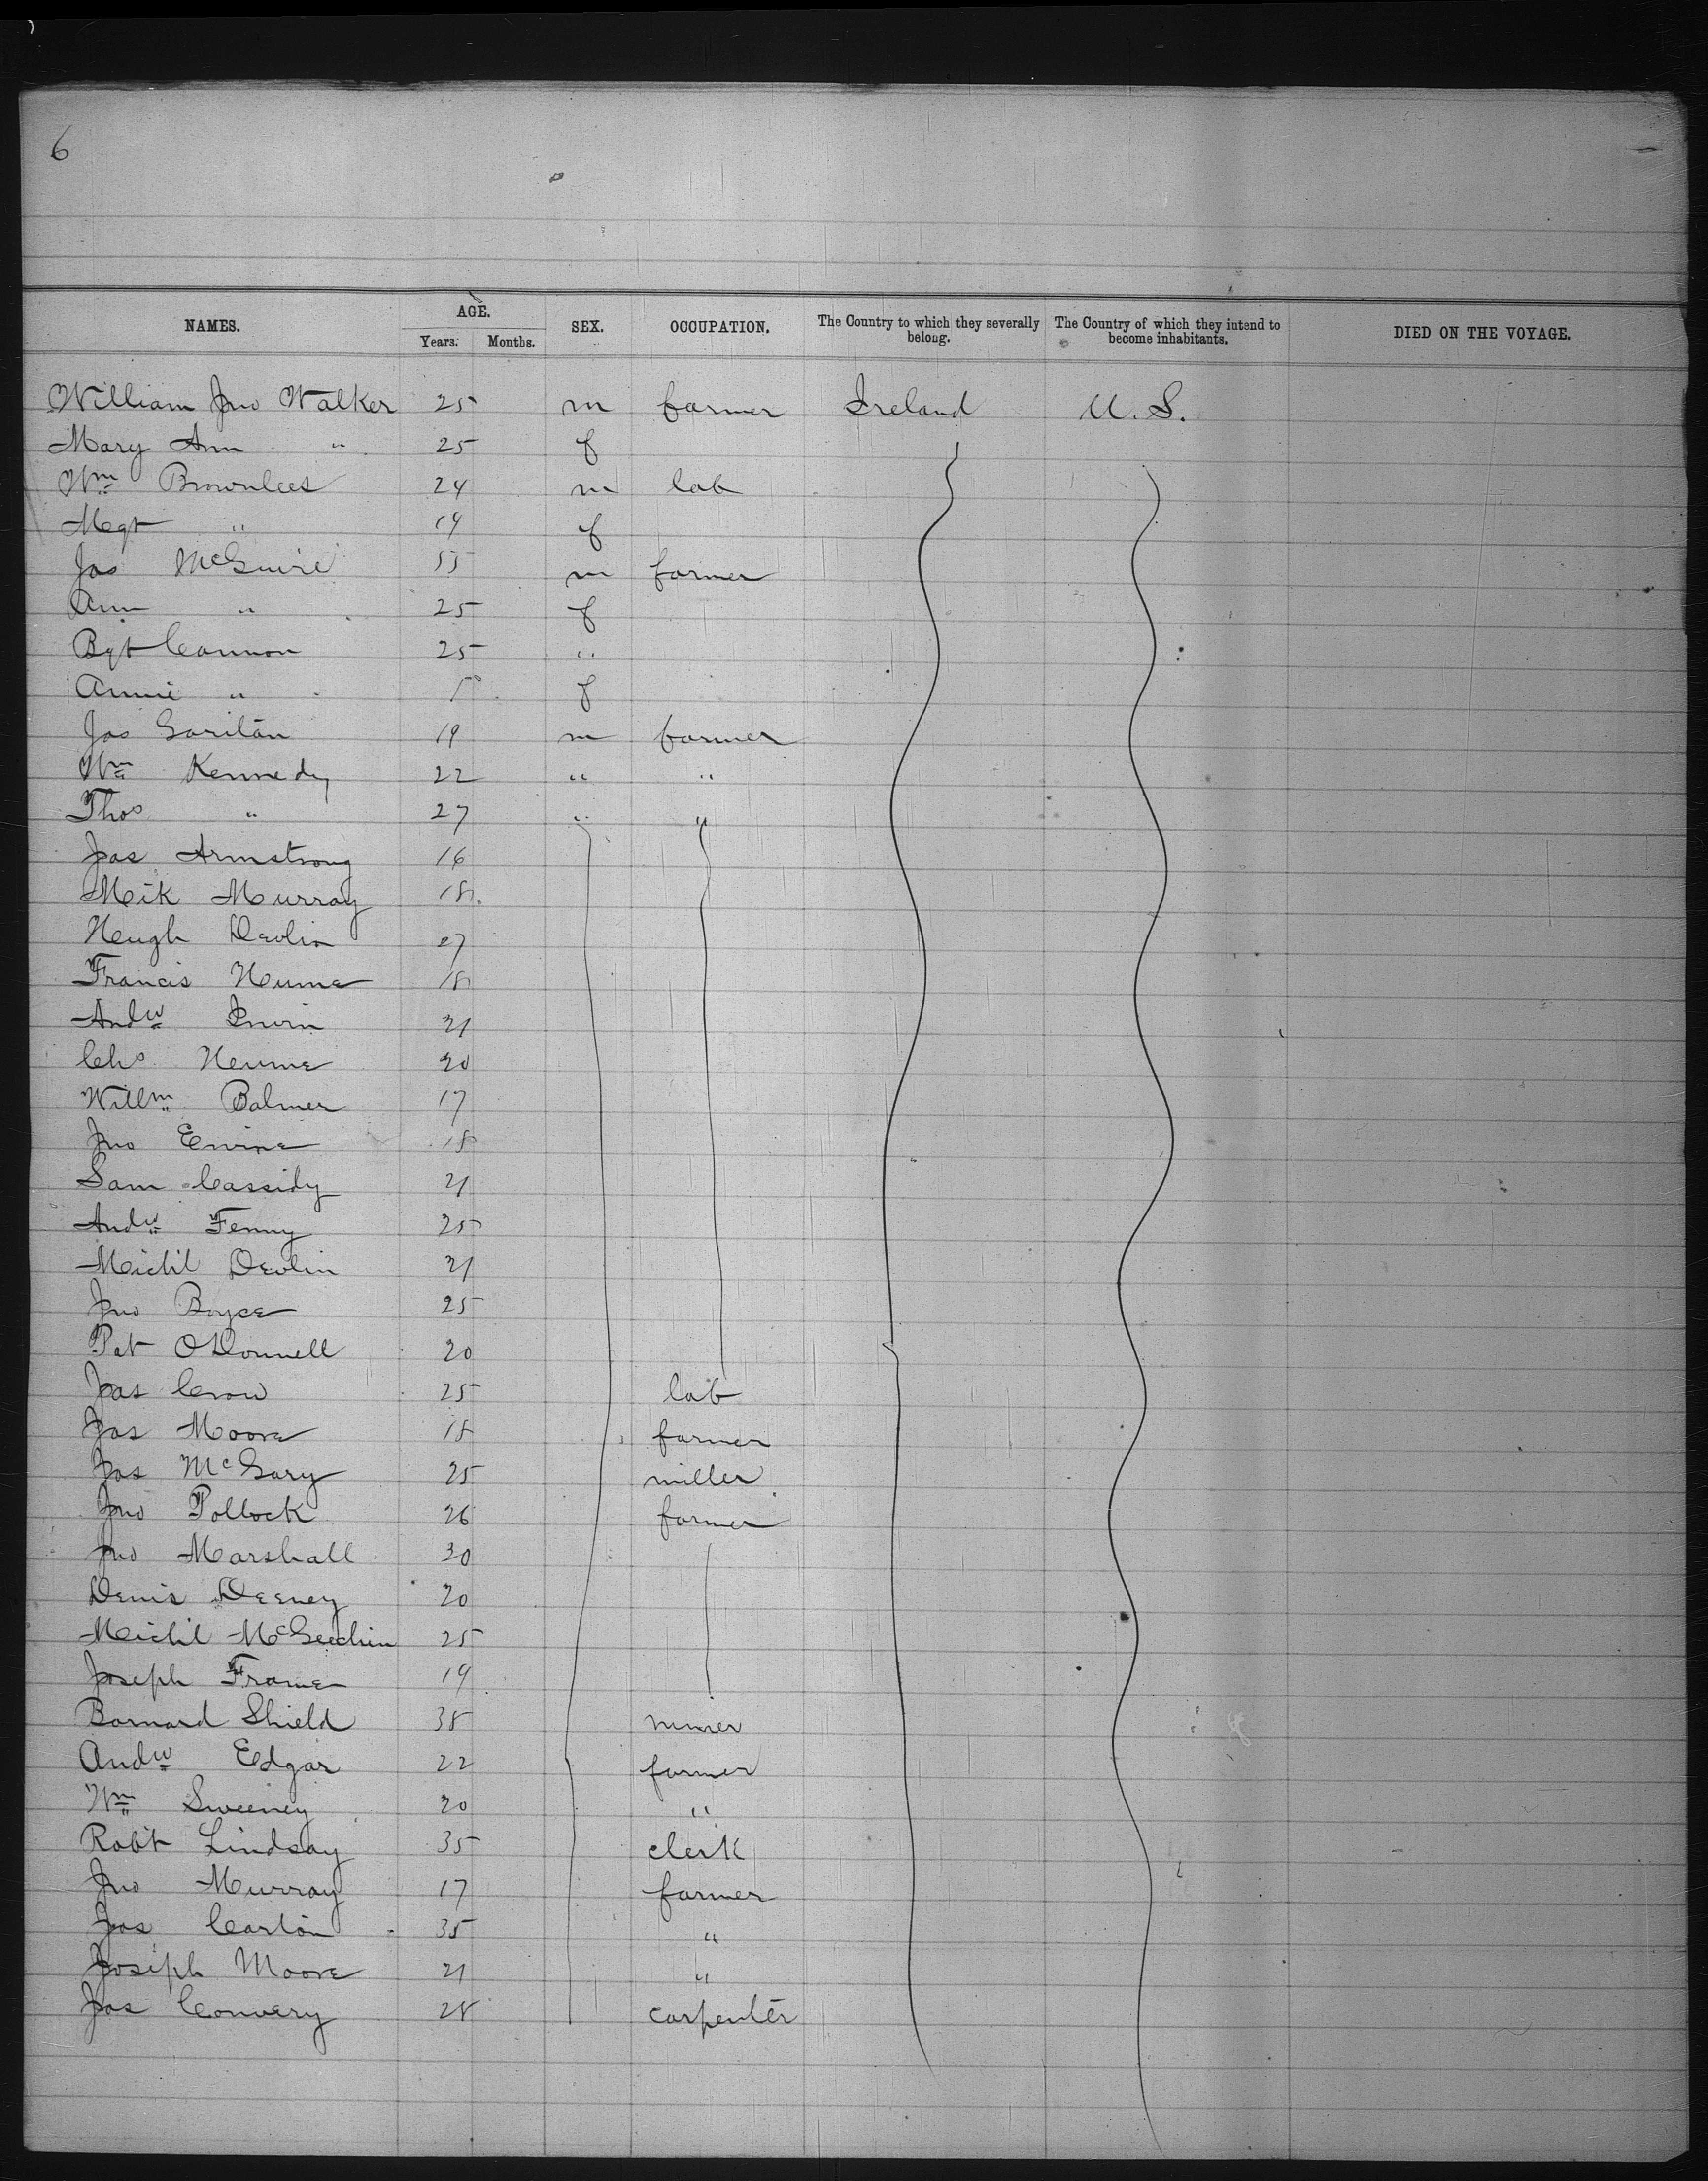 6
NAMES. AGE. SEX. OCCUPATION. The Country to which they severally belong. The Country of which they intend to become inhabitants. DIED ON THE VOYAGE.
Years. Months.
William Jno Walker 25 m farmer Ireland U.S.
Mary Ann " 25 f
Wm Brownlees 24 m lab
Mgt " 19 f
Jas McGuire 55 m farmer
Ann " 25 f
Bgt Cannon 25 "
Annie " f
Jas 19 m farmer
Wm Kennedy 22 " "
Thos " 27 " "
Jas Armstrong 16
Mik Murray 18
Hugh Devlin 27
Francis Hume 18
Andw Irwin 21
Chs Hume 20
Willm Balmer 17
Jno Ervine 18
Sam Cassidy 21
Andw Fenny 25
Michl Devlin 21
Jno Boyce 25
Pat ODonnell 20
Jas Crow 25 lab
Jas Moore 18 farmer
Jas McGary 25 miller
Jno Pollock 26 farmer
Jno Marshall 30
Denis Deeney 20
Michl McGeechin 25
Joseph Frame 19
Barnard Shield 38 miner
Andw Edgar 22 farmer
Wm Sweeney 20 "
Robt Lindsay 35 clerk
Jno Murray 17 farmer
Jas Carlon 35 "
Joseph Moore 21 "
Jas Convery 28 carpenter